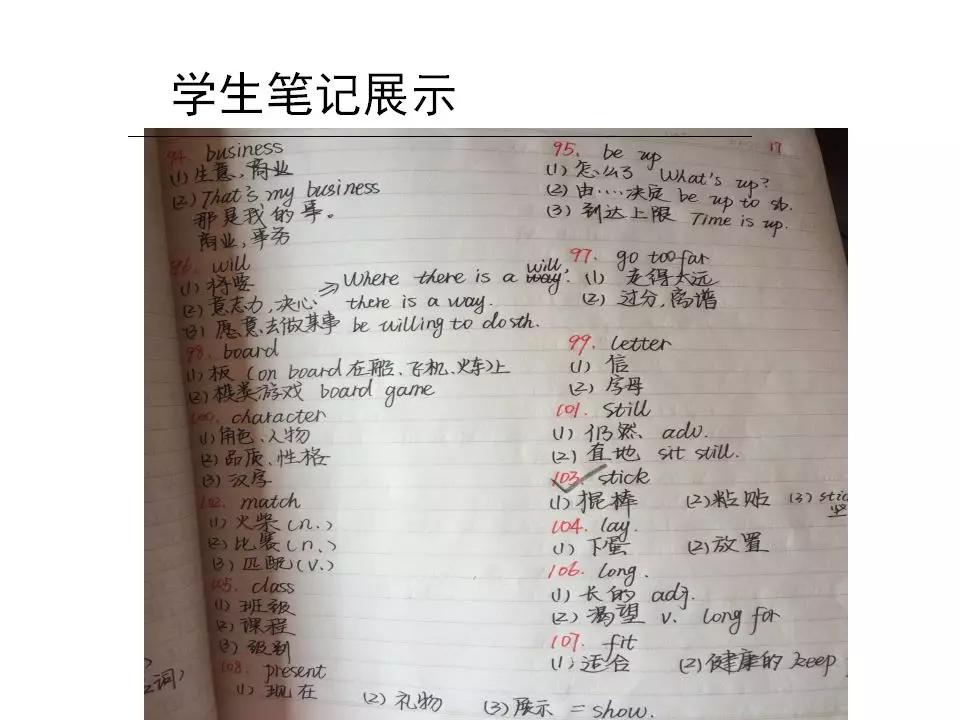 学生笔记展示
17
94. business
(1) 生意,商业
(2) That's my business
那是我的事。
商业,事务
95. be up
(1) 怎么了 What's up?
(2) 由……决定 be up to sb.
(3) 到达上限 Time is up.
96. will
(1) 将要
(2) 意志力,决心
(3) 愿意去做某事 be willing to do sth.
⇒ Where there is a will,
there is a way.
97. go too far
(1) 走得太远
(2) 过分,离谱
98. board
(1) 板 (on board 在船、飞机、火车)上
(2) 棋类游戏 board game
99. letter
(1) 信
(2) 字母
100. character
(1) 角色、人物
(2) 品质、性格
(3) 汉字
101. still
(1) 仍然 adv.
(2) 直地 sit still.
102. match
(1) 火柴(n.)
(2) 比赛(n.)
(3) 匹配(v.)
103. stick
(1) 棍棒 (2) 粘贴 (3)
104. lay.
(1) 下蛋 (2) 放置
105. class
(1) 班级
(2) 课程
(3) 级别
106. long.
(1) 长的 adj.
(2) 渴望 v. long for
107. fit
(1) 适合 (2) 健康的 keep
108. present
(1) 现在 (2) 礼物 (3) 展示 = show.
词)